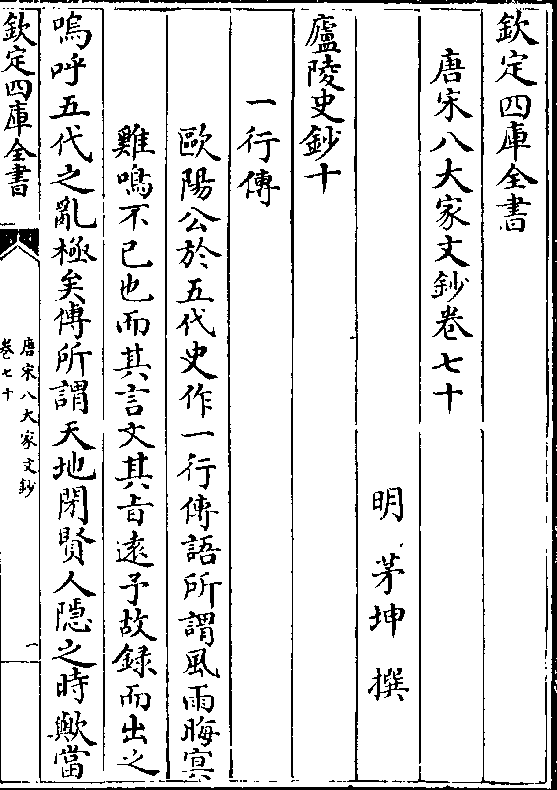 欽定四庫全書
唐宋八大家文鈔卷七十
明 茅坤 撰
廬陵史鈔十
一行傳
歐陽公於五代史作一行傳語所謂風雨晦冥
雞鳴不已也而其言文其旨遠予故録而出之
嗚呼五代之亂極矣傳所謂天地閉賢人隱之時歟當
欽定四庫全書
唐宋八大家文鈔
卷七十
一